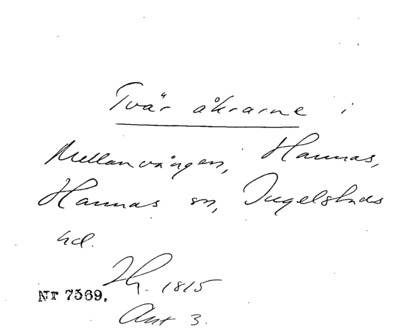 Tvär åkrarne i
Mellanvången, Hannas,
Hannas sn, Ingelstads
hd.
Nr 7569.
1815
Akt 3.